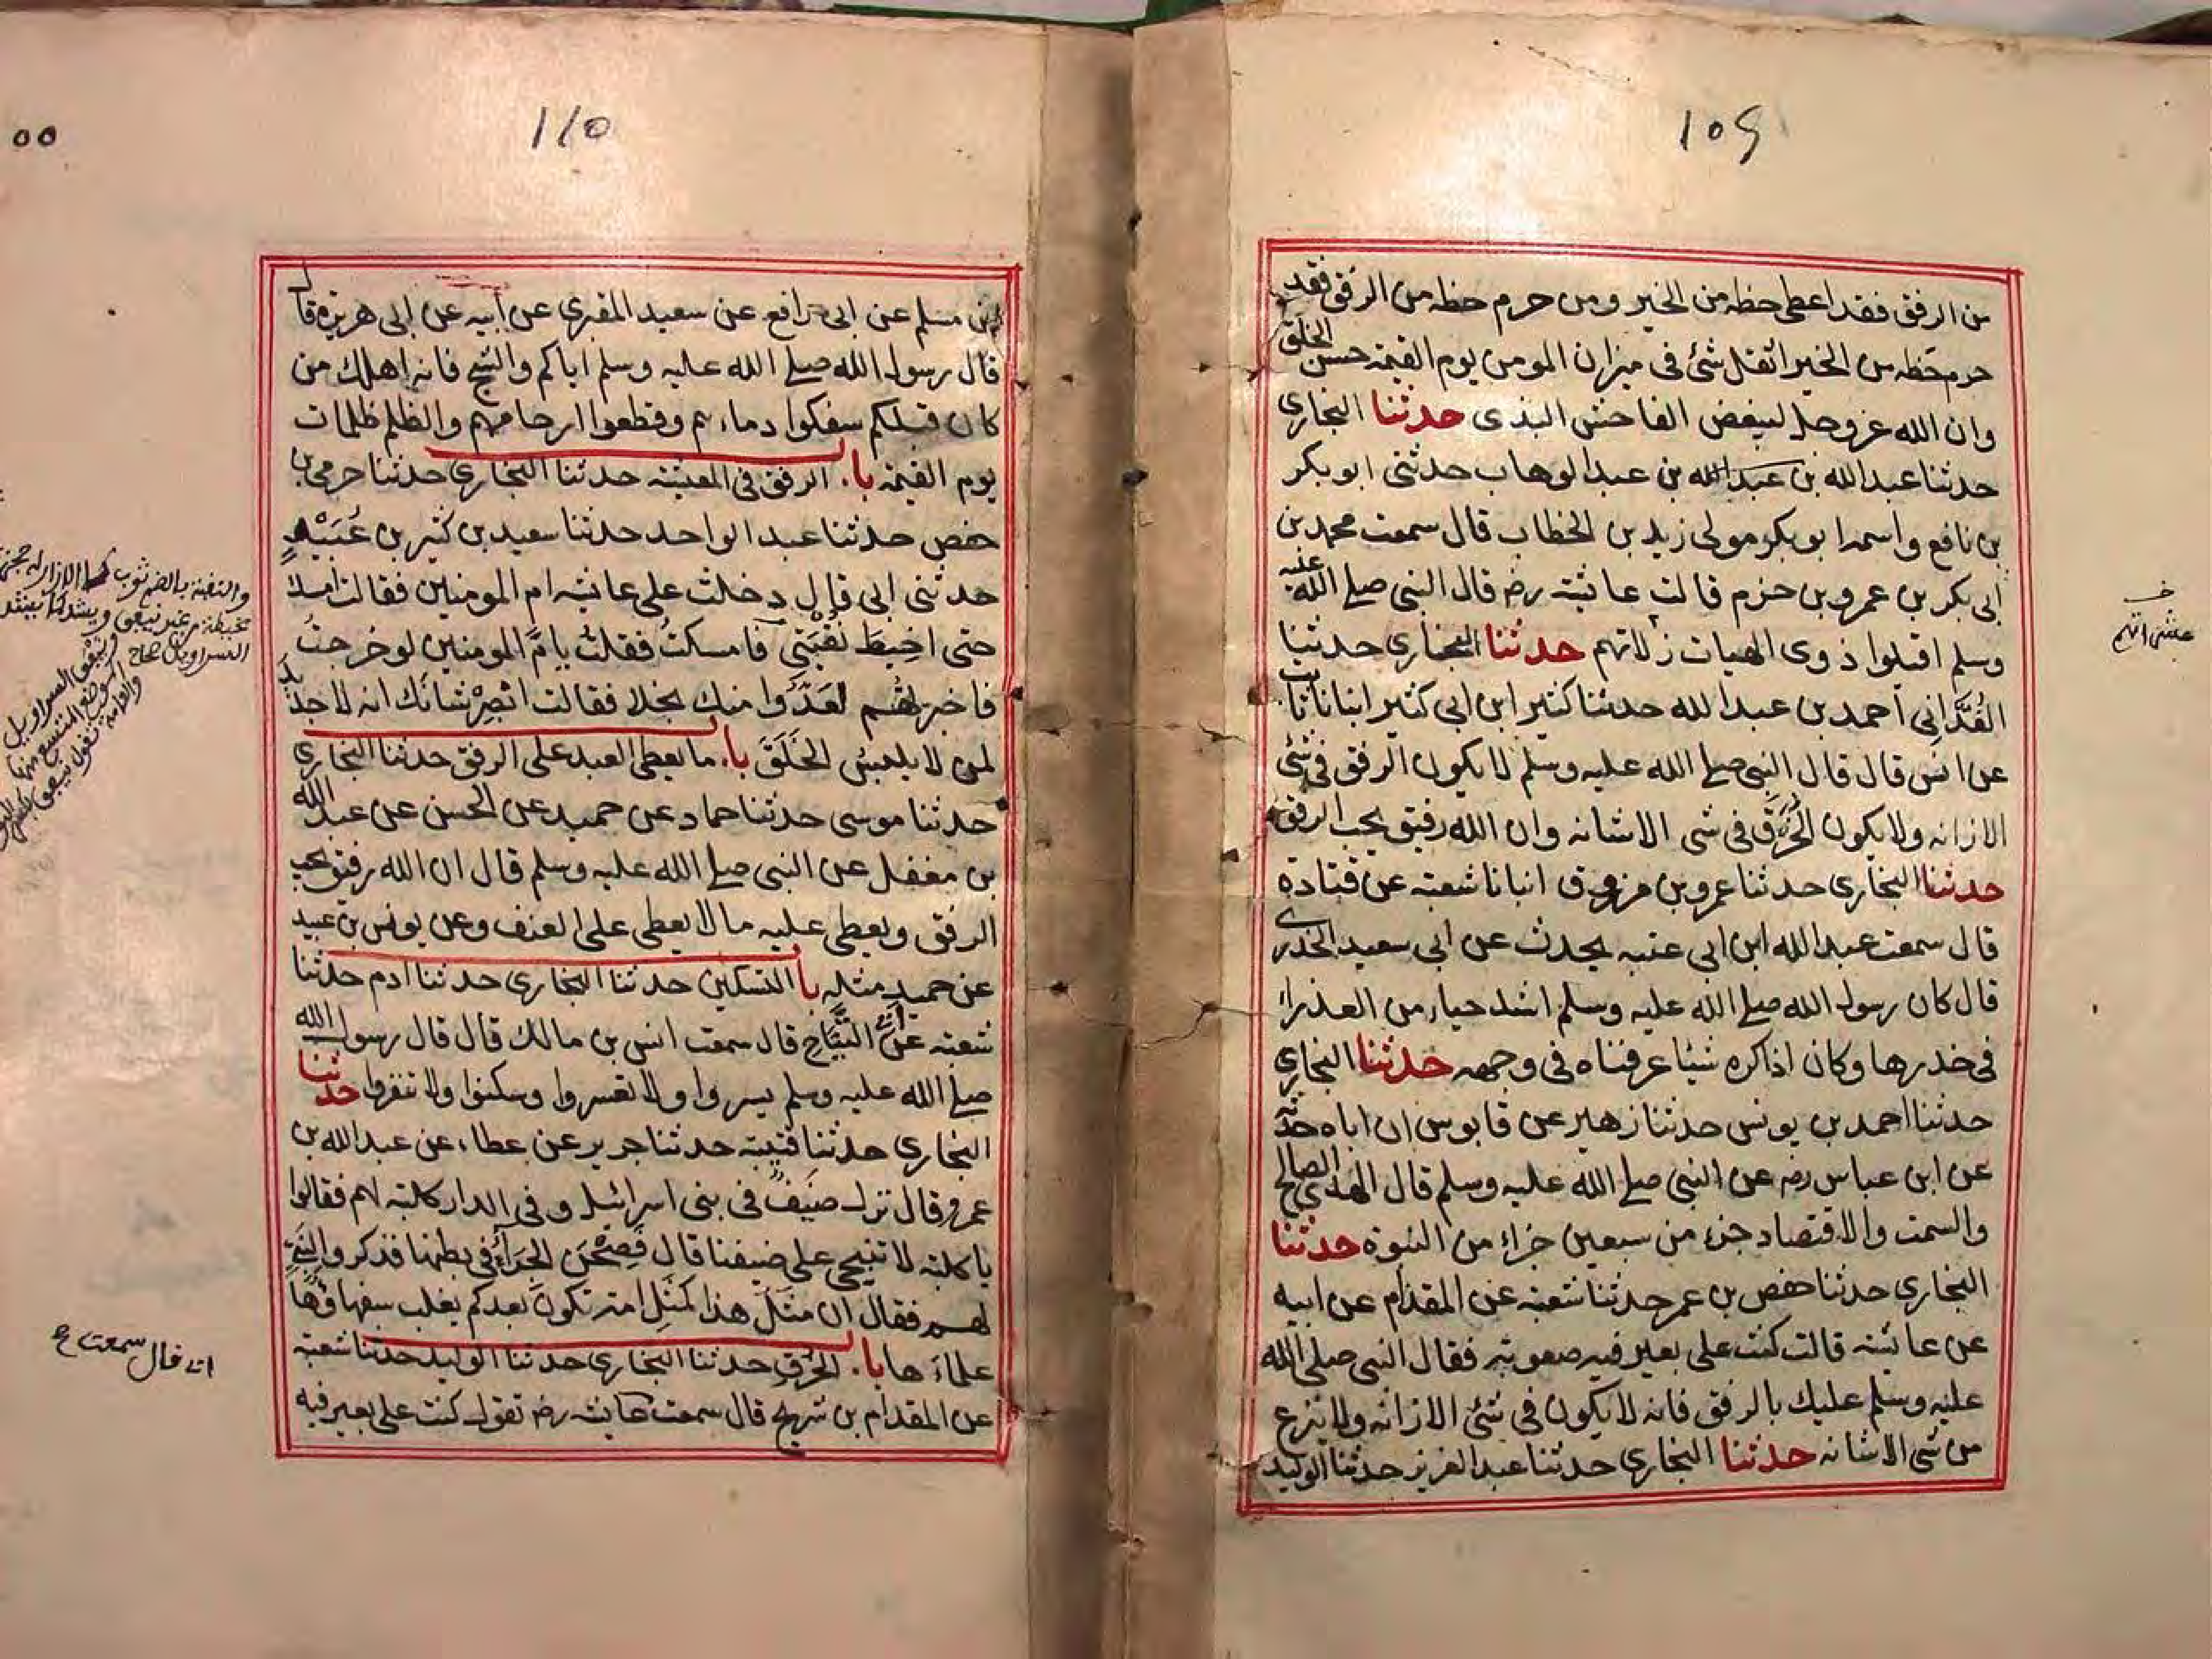 109
من الرفق فقد اعطى حظه من الخير ومن حرم حظه من الرفق فقد
حرم حظه من الخير اثقل شئ فى ميزان المومن يوم القيمة حسن الخلق
وان الله عز وجل ليبغض الفاحش البذى حدثنا البخارى
حدثنا عبدالله بن عبدالله بن عبدالوهاب حدثنى ابو بكر
بن نافع واسمه ابو بكر مولى زيد بن الخطاب قال سمعت محمد بن
ابى بكر بن عمرو بن حزم قالت عائشة رض قال النبى صلے الله عليه
وسلم اقيلوا ذوى الهيات زلاتهم حدثنا البخارى حدثنا
الغُدَّانِى احمد بن عبدالله حدثنا كثير ابن ابى كثير انبانا ثابت
عن انس قال قال النبى صلے الله عليه وسلم لا يكون الرفق فى شئ
الا زانه ولا يكون الخُرْقَ فى شى الا شانه وان الله رفيق يحب الرفق
حدثنا البخارى حدثنا عمرو بن مرزوق انبانا شعبة عن قتادة
قال سمعت عبدالله ابن ابى عتبه يحدث عن ابى سعيد الخدرى
قال كان رسول الله صلے الله عليه وسلم اشد حياء من العذراء
فى خدرها وكان اذا كره شيئا عرفناه فى وجهه حدثنا البخارى
حدثنا احمد بن يونس حدثنا زهير عن قابوس ان اباه حدثه
عن ابن عباس رض عن النبى صلے الله عليه وسلم قال الهدى الصالح
والسمت والاقتصاد جزء من سبعين جزاء من النبوة حدثنا
البخارى حدثنا حفص بن عمر حدثنا شعبة عن المقدام عن ابيه
عن عائشة قالت كنت على بعير فيه صعوبة فقال النبى صلى الله
عليه وسلم عليك بالرفق فانه لا يكون فى شئ الا زانه ولا ينزع
من شى الا شانه حدثنا البخارى حدثنا عبدالعزيز حدثنا الوليد
110
55
بن مسلم عن ابى رافع عن سعيد المقبرى عن ابيه عن ابى هريرة قال
قال رسول الله صلے الله عليه وسلم اياكم والشح فانه اهلك من
كان قبلكم سفكوا دماءهم وقطعوا ارحامهم والظلم ظلمات
يوم القيمة باب الرفق فى المعيشة حدثنا البخارى حدثنا حرمى بن
حفص حدثنا عبدالواحد حدثنا سعيد بن كثير بن عُبَيْدٍ
حدثنى ابى قال دخلت على عائشه ام المومنين فقالت امسك
حتى اخيطَ نُقْبَتِي فامسكتُ فقلت يا مَّ المومنين لو خرجتُ
فاخبرتهم لعَدُّوا منك بخلا فقالت ابْصِرْ شانَك انه لا جديد
لمن لا يلبس الخَلَقَ باب ما يعطى العبد على الرفق حدثنا البخارى
حدثنا موسى حدثنا حماد عن حميد عن الحسن عن عبدالله
بن مغفل عن النبى صلے الله عليه وسلم قال ان الله رفيق يحب
الرفق ويعطى عليه ما لا يعطى على العنف وعن يونس بن عبيد
عن حميد مثله با التسكين حدثنا البخارى حدثنا ادم حدثنا
شعبة عن ابى التَّيَّاح قال سمعت انس بن مالك قال قال رسول الله
صلے الله عليه وسلم يسروا ولا تعسروا وسكنوا ولا تنفروا حدثنا
البخارى حدثنا قتيبة حدثنا جرير عن عطاء عن عبدالله بن
عمرو قال نزل ضيفٌ فى بنى اسرائيل وفى الدار كلبة لهم فقالوا
يا كلبة لا تنبحى على ضيفنا قال فَصِحْنَ الجَرَاءُ فى بطنها فذكروا لنبىٍّ
لهم فقال ان مثلَ هذا كمثلِ امة تكون بعدكم يغلب سفهاؤها
علماءَها باب الخُرْقِ حدثنا البخارى حدثنا الوليد حدثنا شعبة
عن المقدام بن شريح قال سمعت عائشة رض تقول كنت على بعير فيه
اى قال سمعت ع